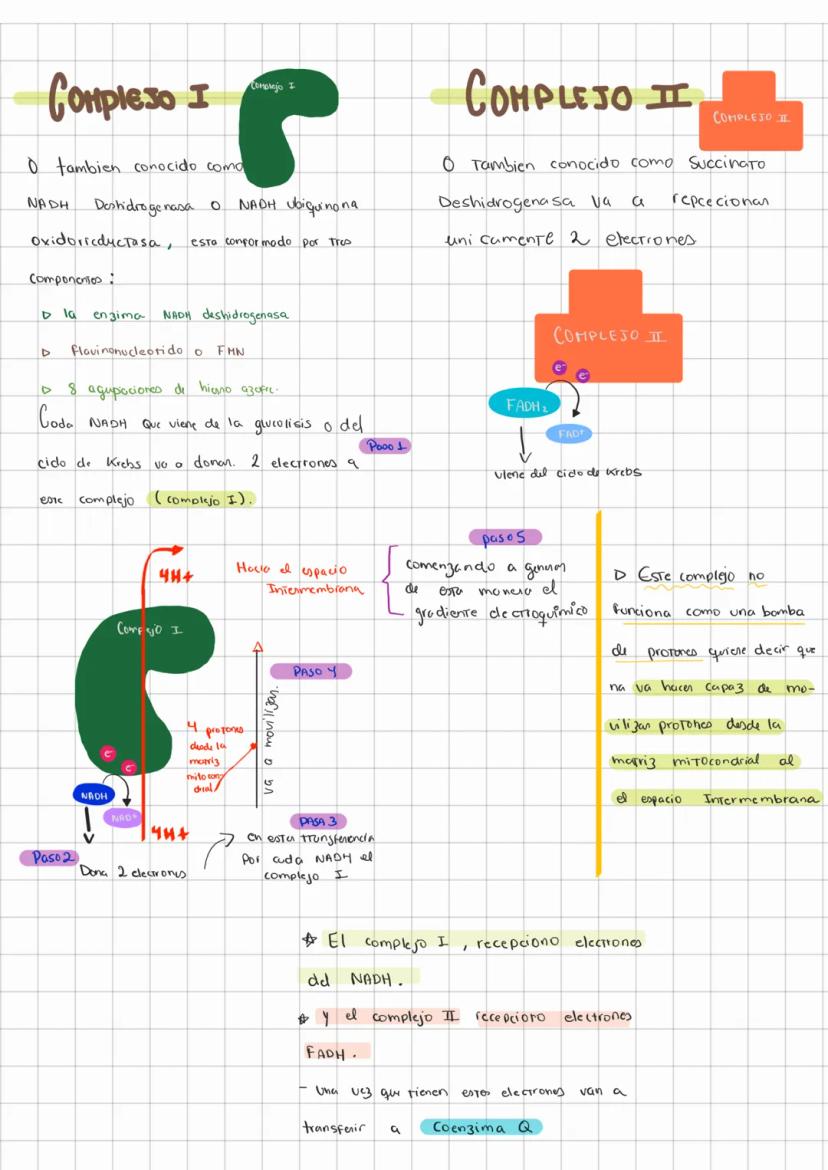 Complejo I
Complejo I
O tambien conocido como
NADH Deshidrogenasa o NADH ubiquinona
oxidorreductasa, esta conformado por tres
componentes :
▷ la enzima NADH deshidrogenasa
▷ flavinonucleotido o FMN
▷ 8 agupaciones de hierro azufre.
Cada NADH que viene de la glucolisis o del
Paso 1
ciclo de Krebs va a donar. 2 electrones a
este complejo (complejo I).
4H+
Hacia el espacio
Intermembrana
paso 5
comenzando a generar
de esta manera el
gradiente electroquimico
Complejo I
PASO 4
va a movilizar.
4 protones
desde la
matriz
mitocon
drial
e-
e-
NADH
NAD+
4H+
Paso 2
Dona 2 electrones
PASA 3
en esta transferencia
Por cada NADH el
complejo I
COMPLEJO II
COMPLEJO II
O Tambien conocido como Succinato
Deshidrogenasa va a repcecionar
unicamente 2 electrones
COMPLEJO II
e-
e-
FADH2
FAD+
viene del ciclo de Krebs
▷ Este complejo no
funciona como una bomba
de protones quiere decir que
na va hacer capaz de mo-
vilizar protones desde la
matriz mitocondrial al
el espacio Intermembrana
☆ El complejo I , recepciono electrones
del NADH .
☆ y el complejo II recepciono electrones
FADH .
- Una vez que tienen estos electrones van a
transferir a Coenzima Q